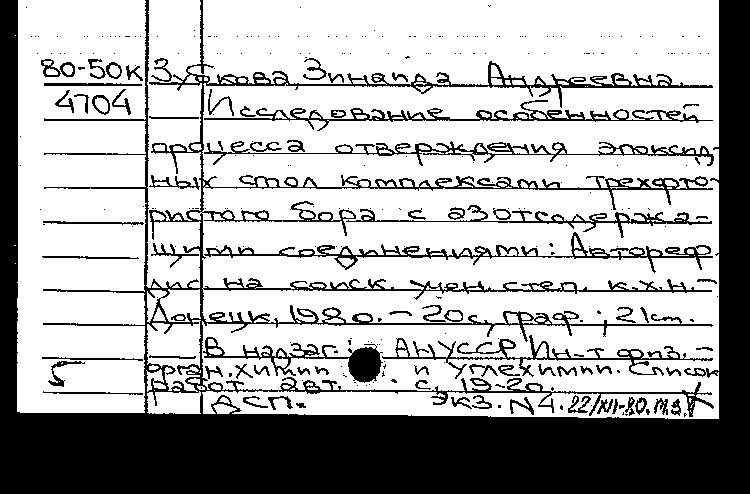 80-50к Зубкова, Зинаида Андреевна.
4704 Исследование особенностей
процесса отверждения эпоксид-
ных смол комплексами трехфто-
ристого бора с азотсодержа-
щими соединениями: Автореф.
дис. на соиск. учен. степ. к.х.н. -
Донецк, 1980. - 20с., граф.; 21cm.
В надзаг.: АН УССР, Ин-т физ.-
орган. химии и углехимии. Список
работ авт.: с. 19-20.
ДСП. Экз. N4. 22/XII-80.